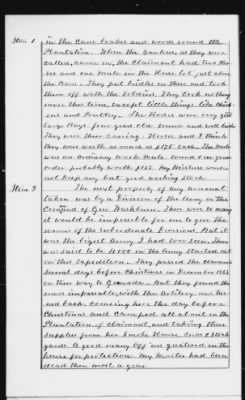 Item 1
in the Cane brakes and woods round the
Plantation. When the Yankees, as they were
called, came in, the Claimant had two Hor-
ses and one Mule in the Horse lot, just above
the Barn. They put bridles on them and took
them off with the Soldiers. They took nothing
more this time, except little things like chick-
ens and Poultry. The Horses were very good
large Bays four years old sound and well broke
They were three during Horses, and I think
they were worth as much as $175 each. The Mule
was an ordinary work Mule sound & in good
order probably worth $125. My Mistress would
not keep any but good working stock.
Item 2
The most property of any amount
taken was by a Division of the Army in the
Command of Gen Washburn. There were so many
it would be impossible for me to give the
names of the subordinate Divisions. But it
was the bigest Army I had ever seen. There
were said to be 25000 in the Army started out
on this expedition. They passed the Claimants
several days before Christmas in December 1862
on their way to Grenada. But they found the
roads impassable, with the Artillery, and tur-
ned back coming here the day before
Christmas and Camped all about on the
Plantation of Claimant, and taking their
supplies from her Smoke House Cribs & Stock
yards. A good many Off were quartered in the
house for protection. My Master had been
dead then most a year